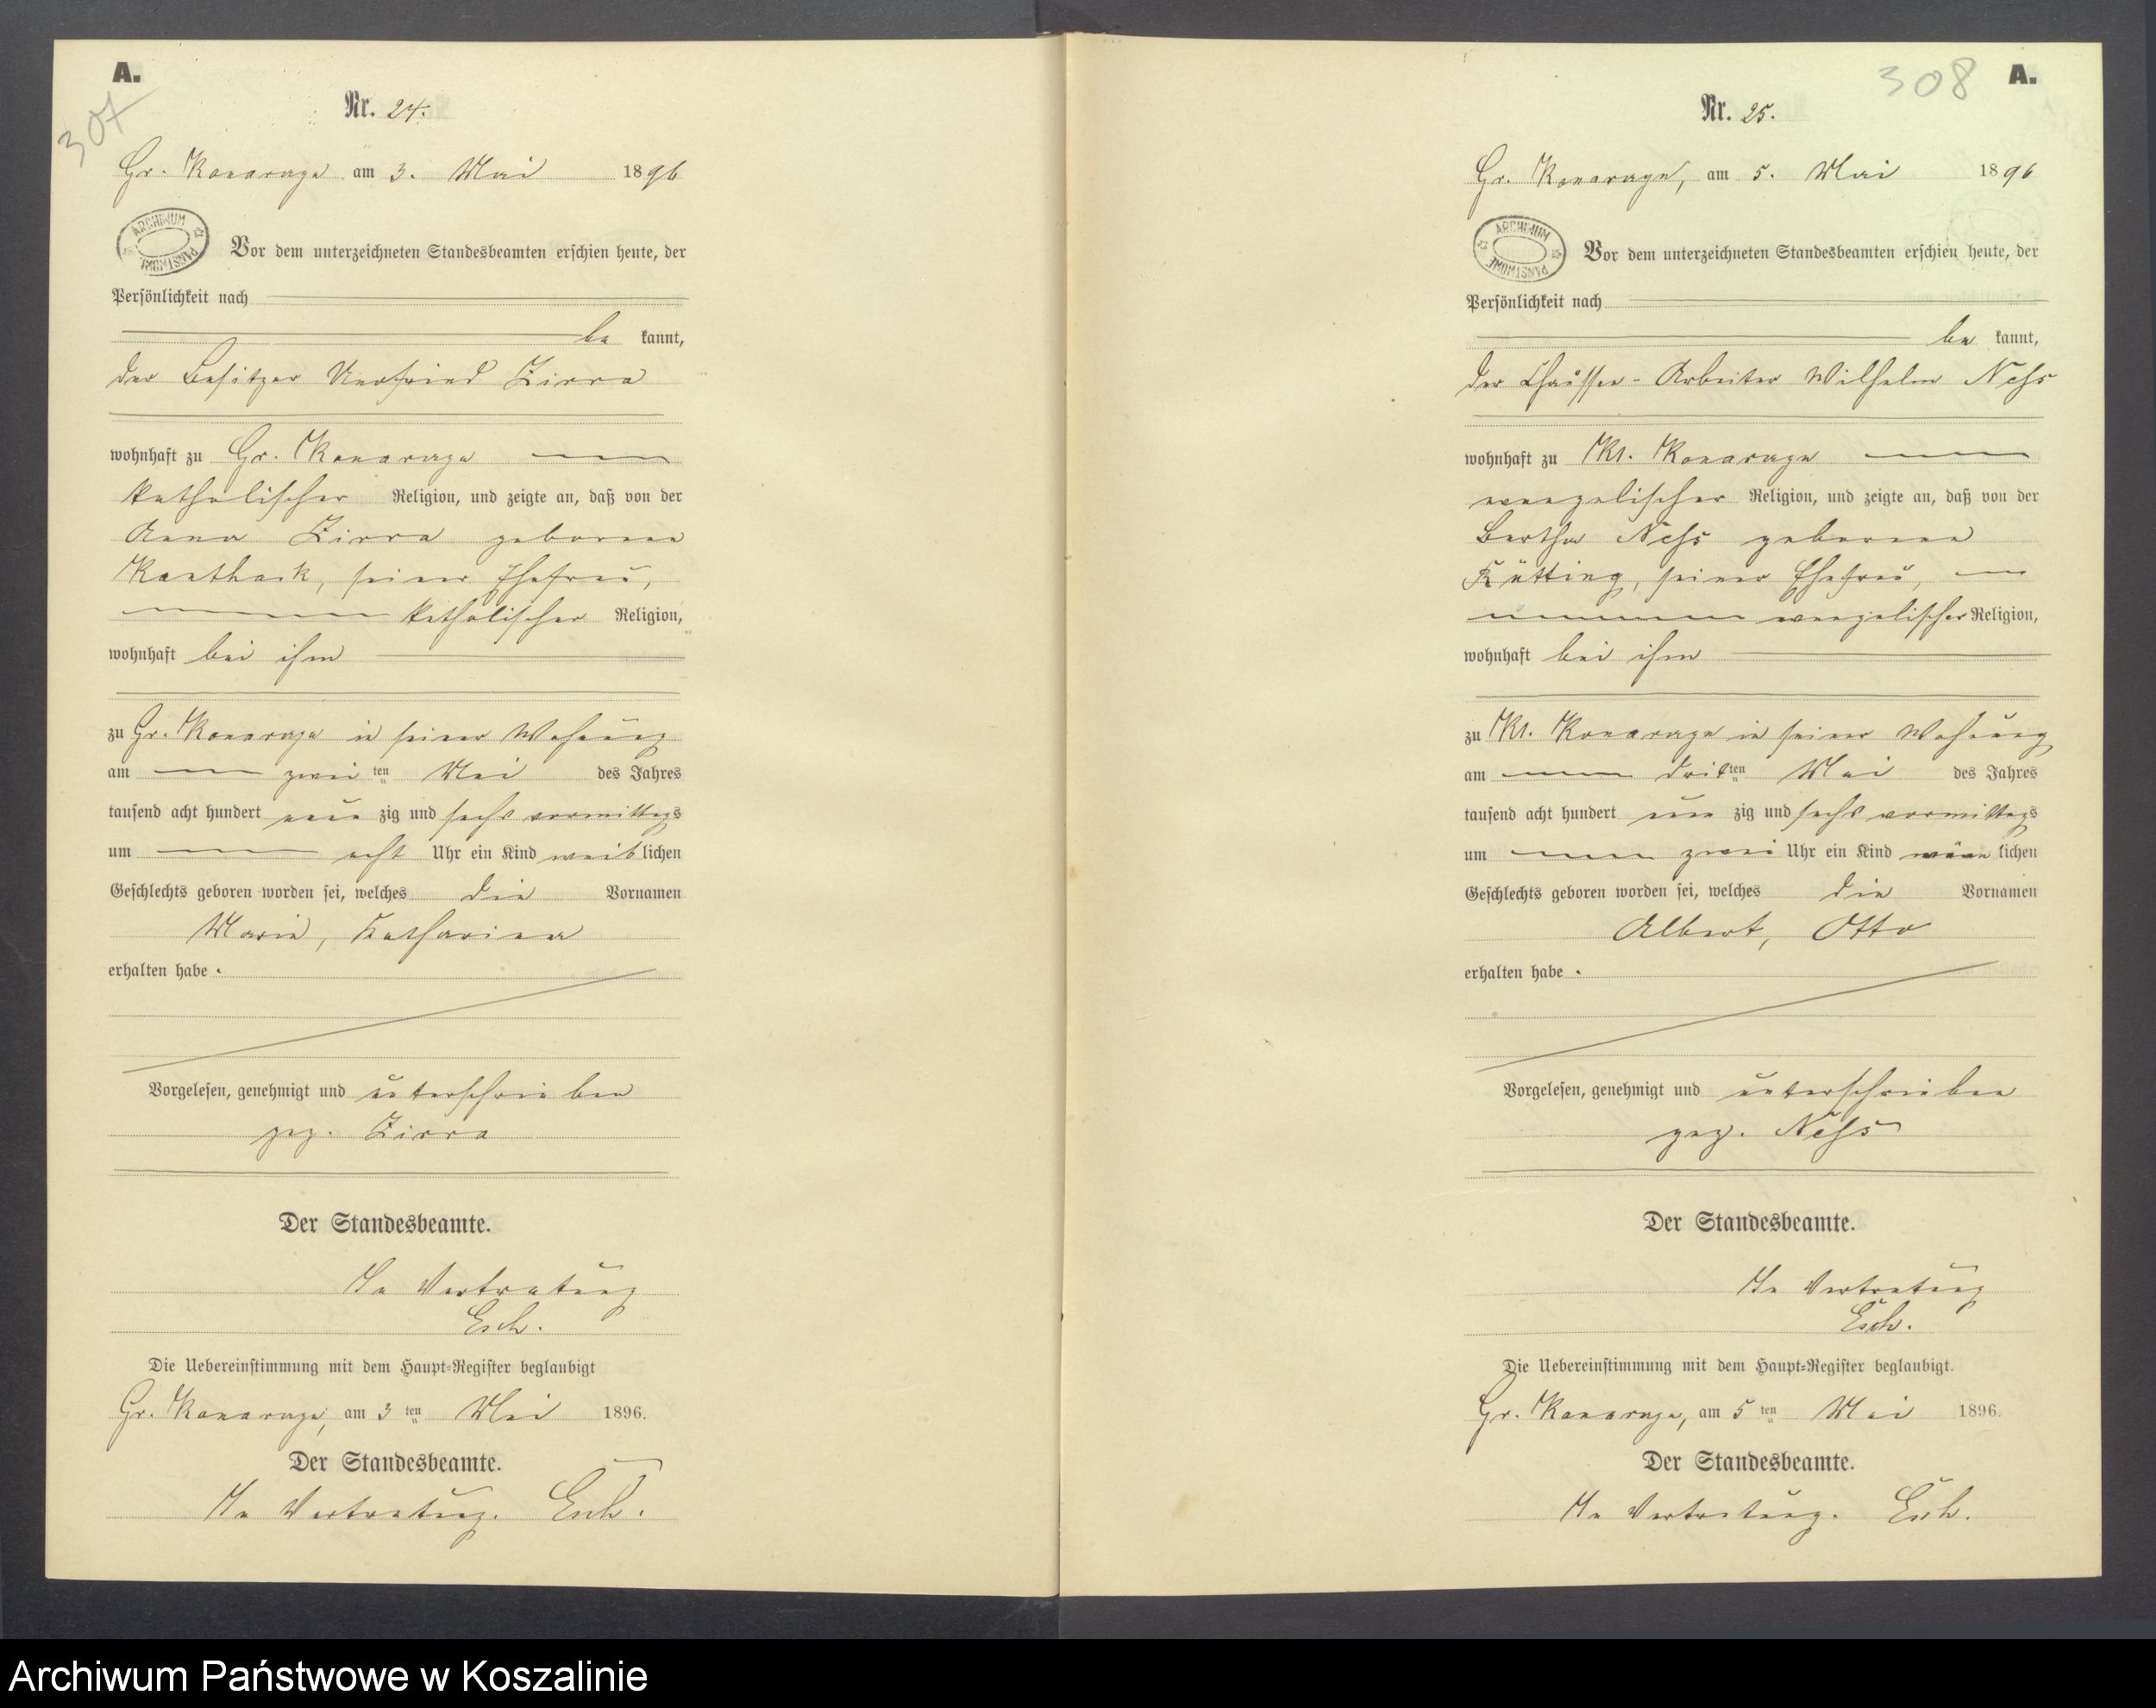 A.
307
Nr. 24.
Gr. Konarczyn am 3. Mai 1896
ARCHIWUM PAŃSTWOWE
Vor dem unterzeichneten Standesbeamten erschien heute, der
Persönlichkeit nach
be kannt,
der Besitzer Zirra
wohnhaft zu Gr. Konarczyn
katholischer Religion, und zeigte an, daß von der
Anna Zirra geborene
Kanthack, seiner Ehefrau,
katholischer Religion,
wohnhaft bei ihm
zu Gr. Konarczyn in seiner Wohnung
am zwei ten Mai des Jahres
tausend acht hundert neun zig und sechs vormittags
um acht Uhr ein Kind weib lichen
Geschlechts geboren worden sei, welches die Vornamen
Marie, Katharina
erhalten habe.
Vorgelesen, genehmigt und unterschrieben
gez. Zirra
Der Standesbeamte.
In Vertretung
Esch.
Die Uebereinstimmung mit dem Haupt-Register beglaubigt
Gr. Konarczyn, am 3 ten Mai 1896.
Der Standesbeamte.
In Vertretung. Esch.
308 A.
Nr. 25.
Gr. Konarczyn, am 5. Mai 1896
ARCHIWUM PAŃSTWOWE
Vor dem unterzeichneten Standesbeamten erschien heute, der
Persönlichkeit nach
be kannt,
der Chaussee-Arbeiter Wilhelm Nehs
wohnhaft zu Kl. Konarczyn
evangelischer Religion, und zeigte an, daß von der
Bertha Nehs geborene
seiner Ehefrau,
evangelischer Religion,
wohnhaft bei ihm
zu Kl. Konarczyn in seiner Wohnung
am dritten Mai des Jahres
tausend acht hundert neun zig und sechs vormittags
um zwei Uhr ein Kind männ lichen
Geschlechts geboren worden sei, welches die Vornamen
Albert, Otto
erhalten habe.
Vorgelesen, genehmigt und unterschrieben
gez. Nehs
Der Standesbeamte.
In Vertretung
Esch.
Die Uebereinstimmung mit dem Haupt-Register beglaubigt.
Gr. Konarczyn, am 5 ten Mai 1896.
Der Standesbeamte.
In Vertretung. Esch.
Archiwum Państwowe w Koszalinie